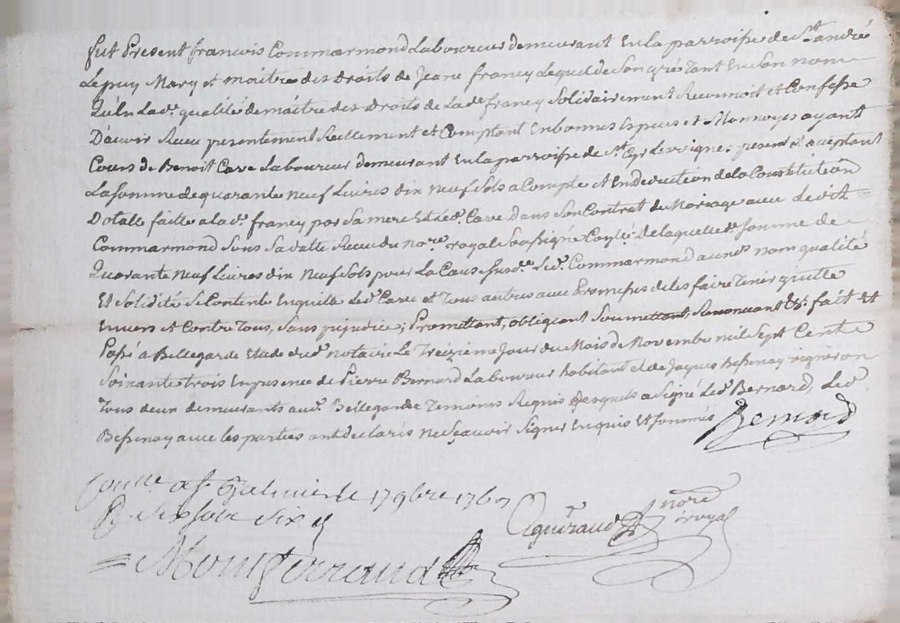 fut Present francois Commarmond Laboureur demeurant en la parroisse de St andré
Le puy Mary et maitre des Droits de Jeane francy Lequel de Son gré Tant en Son nom
qu'en Lade. qualité de maitre des droits de Lade. francy Solidairement Reconnoit et Confesse
D'avoir Receu presentement Reellement et Comptant en bonnes Especes et Monnoyes ayant
Cours de Benoit Cave Laboureur demeurant en la parroisse de St Cyr Les vignes present et aceptant
La somme de quarante neuf Livres dix neuf Sols a Compte et En deduction de la Constitution
Dotalle faitte a lade. francy par Sa mere Et led. Cave dans Son Contrat de Mariage avec dedit =
Commarmond Sous Sa datte Receu du nore. royal Soussigné de laquelle de. Somme de
Quarante neuf Livres dix neuf Sols pour La Cause Led. Commarmond aux nom qualité
Et Solidité Se Contente En quitte led. Cave et Tous autres avec Promesses de les faire Tenir quitte
Envers et Contre Tous, Sans prejudice; Promettant, obligeant Soumettant Renoncant &c. fait Et
Passé a Bellegarde Etude dud. notaire Le Treizieme Jour du Mois de Novembre mil Sept Cent =
Soixante trois En presence de Pierre Bernard Laboureur habitant et de Jacques Bessenay vigneron
Tous deux demeurants aud. Bellegarde Temoins Requis Desquels a Signé led. Bernard, led.
Bessenay avec les parties ont declarés ne Sçavoir Signer Enquis Et Sommés
Bernard
a St Galmier le 17 9bre 1763
Six Sols Six d
= Montferrand
nore royal